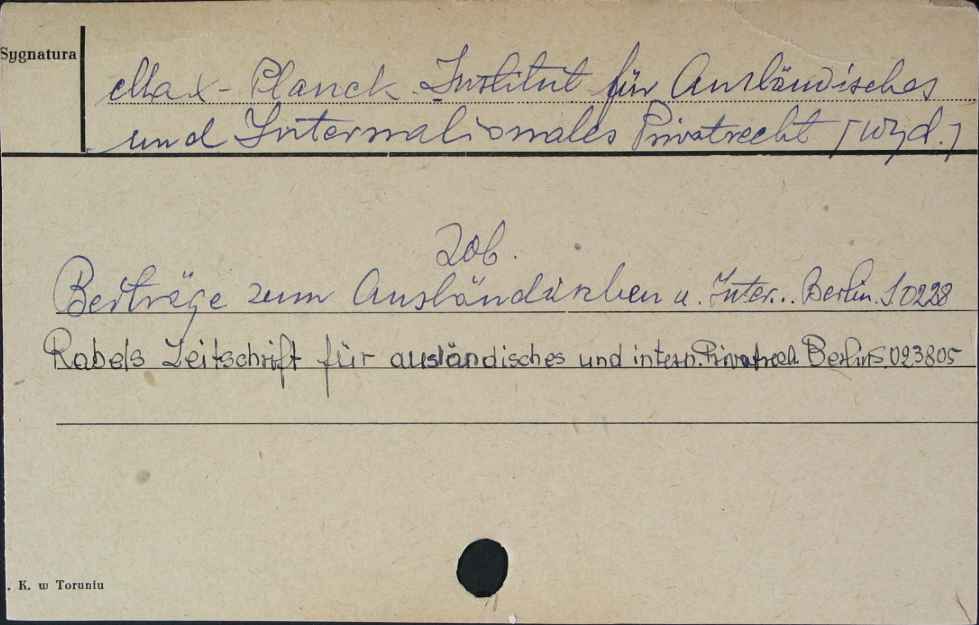 Sygnatura
Max-Planck Institut für Ausländisches
und Internationales Privatrecht [wyd.]
Zob.
Beiträge zum Ausländischen u. Inter... Berlin. S 0228
Rabels Zeitschrift für ausländisches und intern. Privatrech Berlin S.023805
. K. w Toruniu